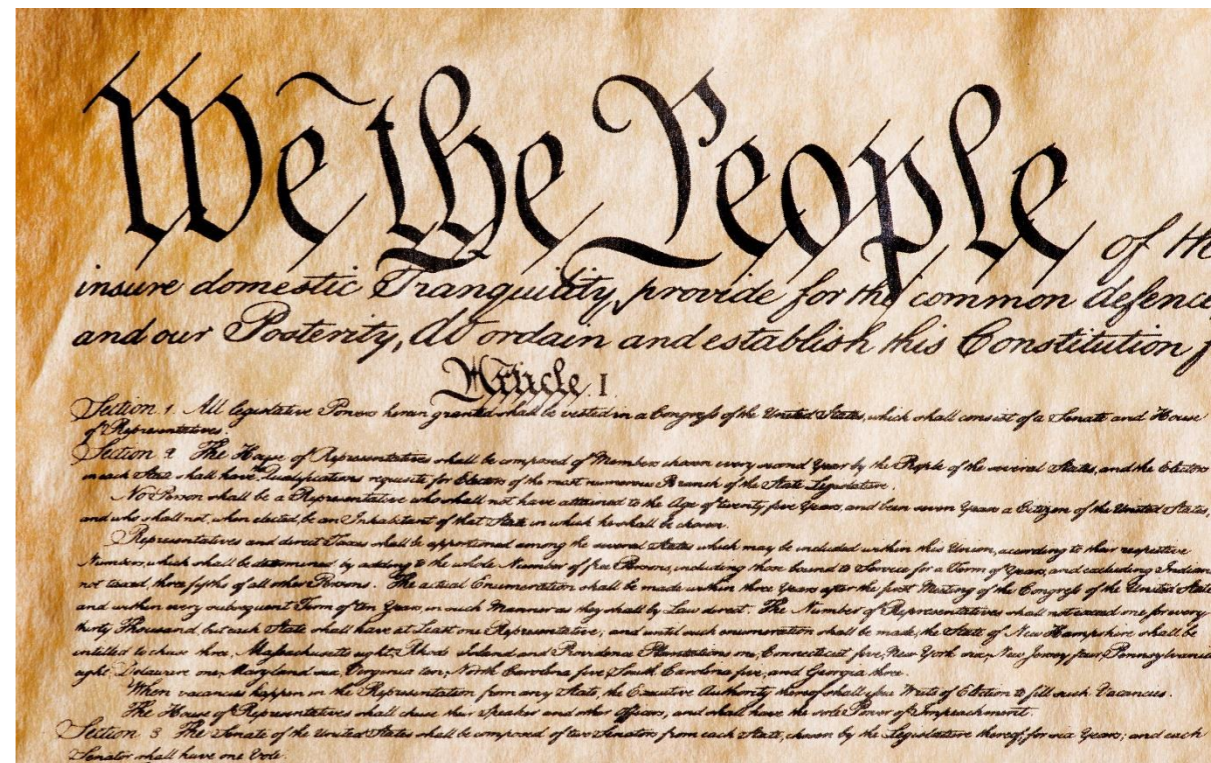 We the People of the
insure domestic Tranquility, provide for the common defence,
and our Posterity, do ordain and establish this Constitution f
Article I
Section 1 All legislative Powers herein granted shall be vested in a Congress of the United States, which shall consist of a Senate and House
of Representatives.
Section 2 The House of Representatives shall be composed of Members chosen every second Year by the People of the several States, and the Electors
in each State shall have the Qualifications requisite for Electors of the most numerous Branch of the State Legislature.
No Person shall be a Representative who shall not have attained to the Age of twenty five Years, and been seven Years a Citizen of the United States,
and who shall not, when elected, be an Inhabitant of that State in which he shall be chosen.
Representatives and direct Taxes shall be apportioned among the several States which may be included within this Union, according to their respective
Numbers, which shall be determined by adding to the whole Number of free Persons, including those bound to Service for a Term of Years, and excluding Indians
not taxed, three fifths of all other Persons. The actual Enumeration shall be made within three Years after the first Meeting of the Congress of the United State
and within every subsequent Term of ten Years, in such Manner as they shall by Law direct. The Number of Representatives shall not exceed one for every
thirty Thousand, but each State shall have at Least one Representative; and until such enumeration shall be made, the State of New Hampshire shall be
entitled to chuse three, Massachusetts eight, Rhode Island and Providence Plantations one, Connecticut five, New York six, New Jersey four, Pennsylvania
eight, Delaware one, Maryland six, Virginia ten, North Carolina five, South Carolina five, and Georgia three.
When vacancies happen in the Representation from any State, the Executive Authority thereof shall issue Writs of Election to fill such Vacancies.
The House of Representatives shall chuse their Speaker and other Officers, and shall have the sole Power of Impeachment.
Section 3 The Senate of the United States shall be composed of two Senators from each State, chosen by the Legislature thereof, for six Years; and each
Senator shall have one Vote.